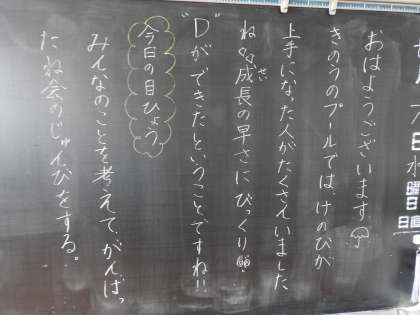 八日水曜日
日直
おはようございます
きのうのプールでは、けのびが
上手になった人がたくさんいました
ね。成長の早さにびっくり
せい
"D"ができたということですね!!
今日の目ひょう
みんなのことを考えて、がんばっ
たね会のじゅんびをする。